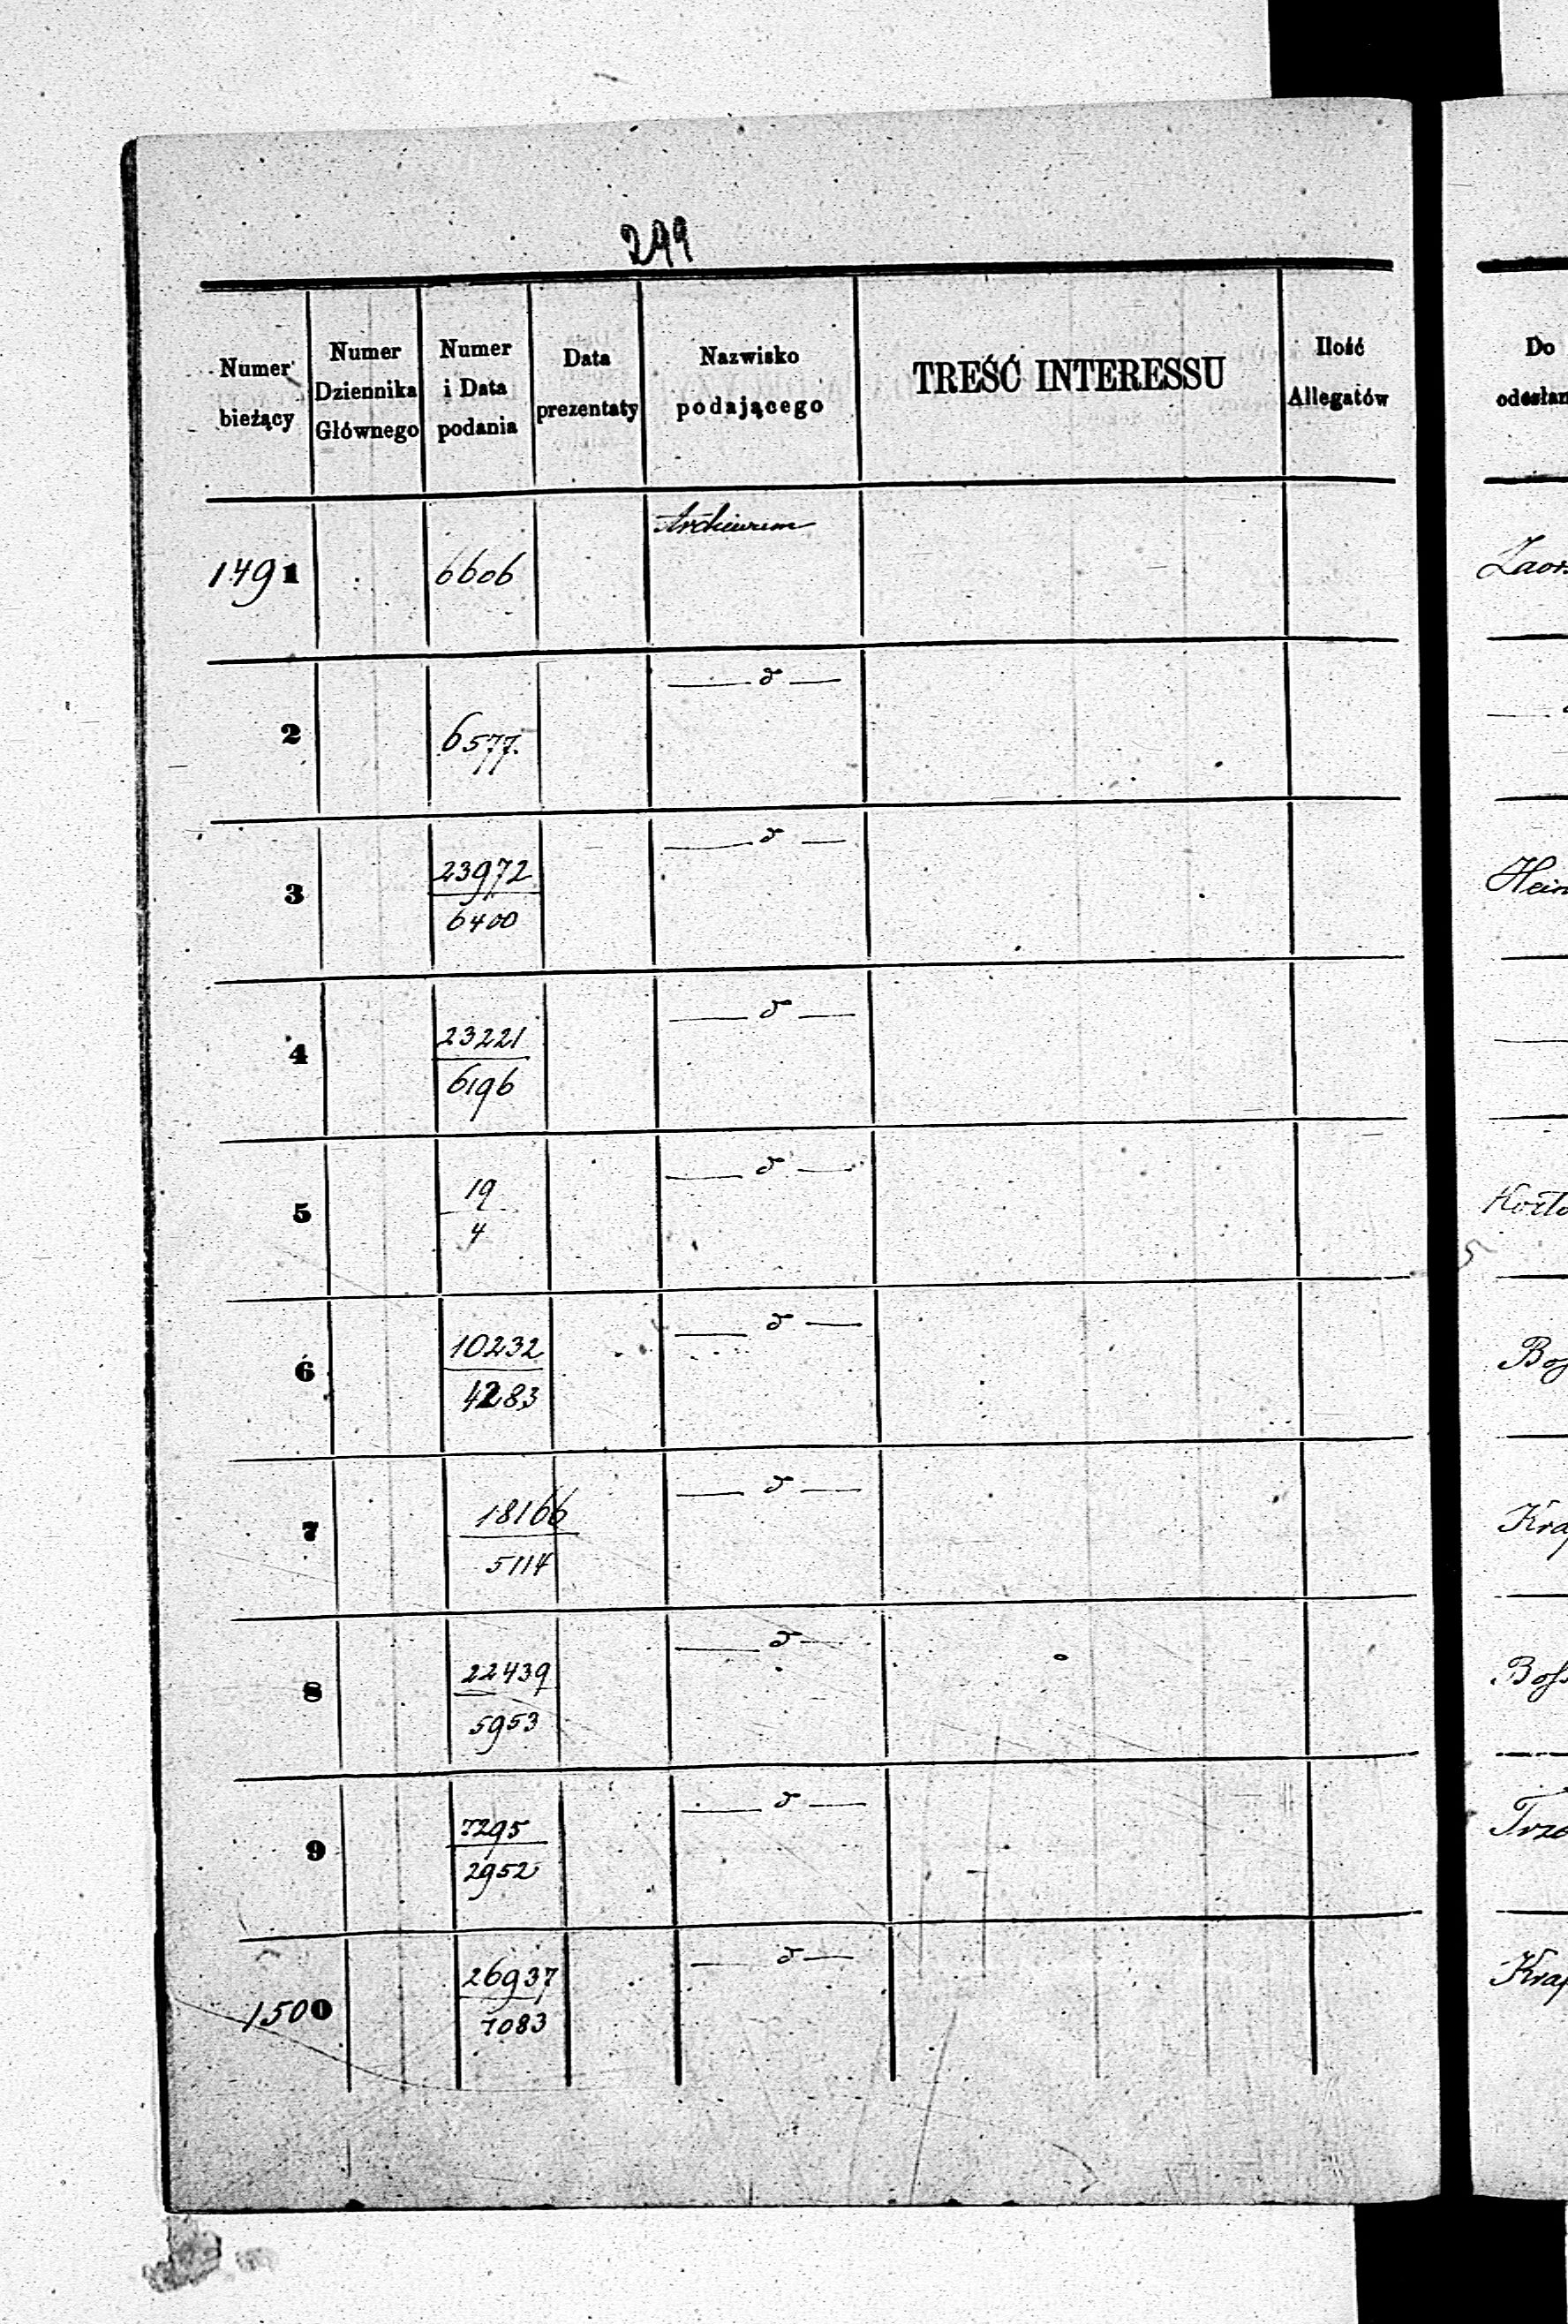 299
Numer bieżący
Numer Dziennika Głównego
Numer i Data podania
Data prezentaty
Nazwisko podającego
TREŚĆ INTERESSU
Ilość Allegatów
Do
1491 6606 Archiwum
2 6577. — d —
3 23972 / 6400 — d —
4 23221 / 6196 — d —
5 19 / 4 — d —
6 10232 / 4283 — d —
7 18166 / 5114 — d —
8 22439 / 5953 — d —
9 7295 / 2952 — d —
1500 26937 / 7083 — d —